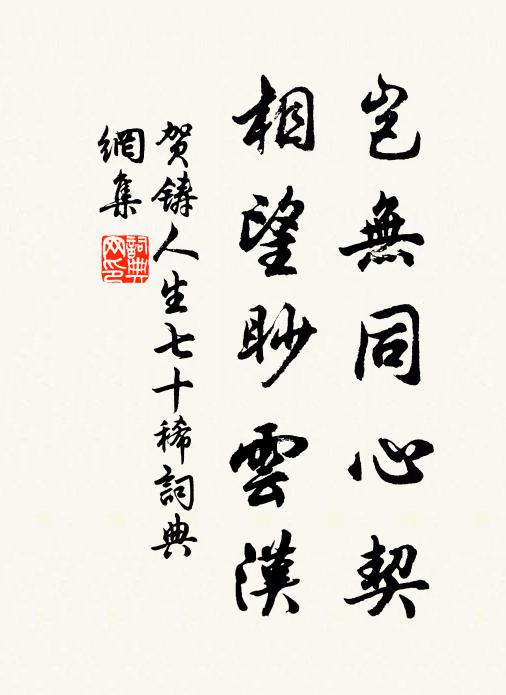 豈無同心契
相望眇雲漢
賀鑄人生七十稀詞典
網集
詞典网印